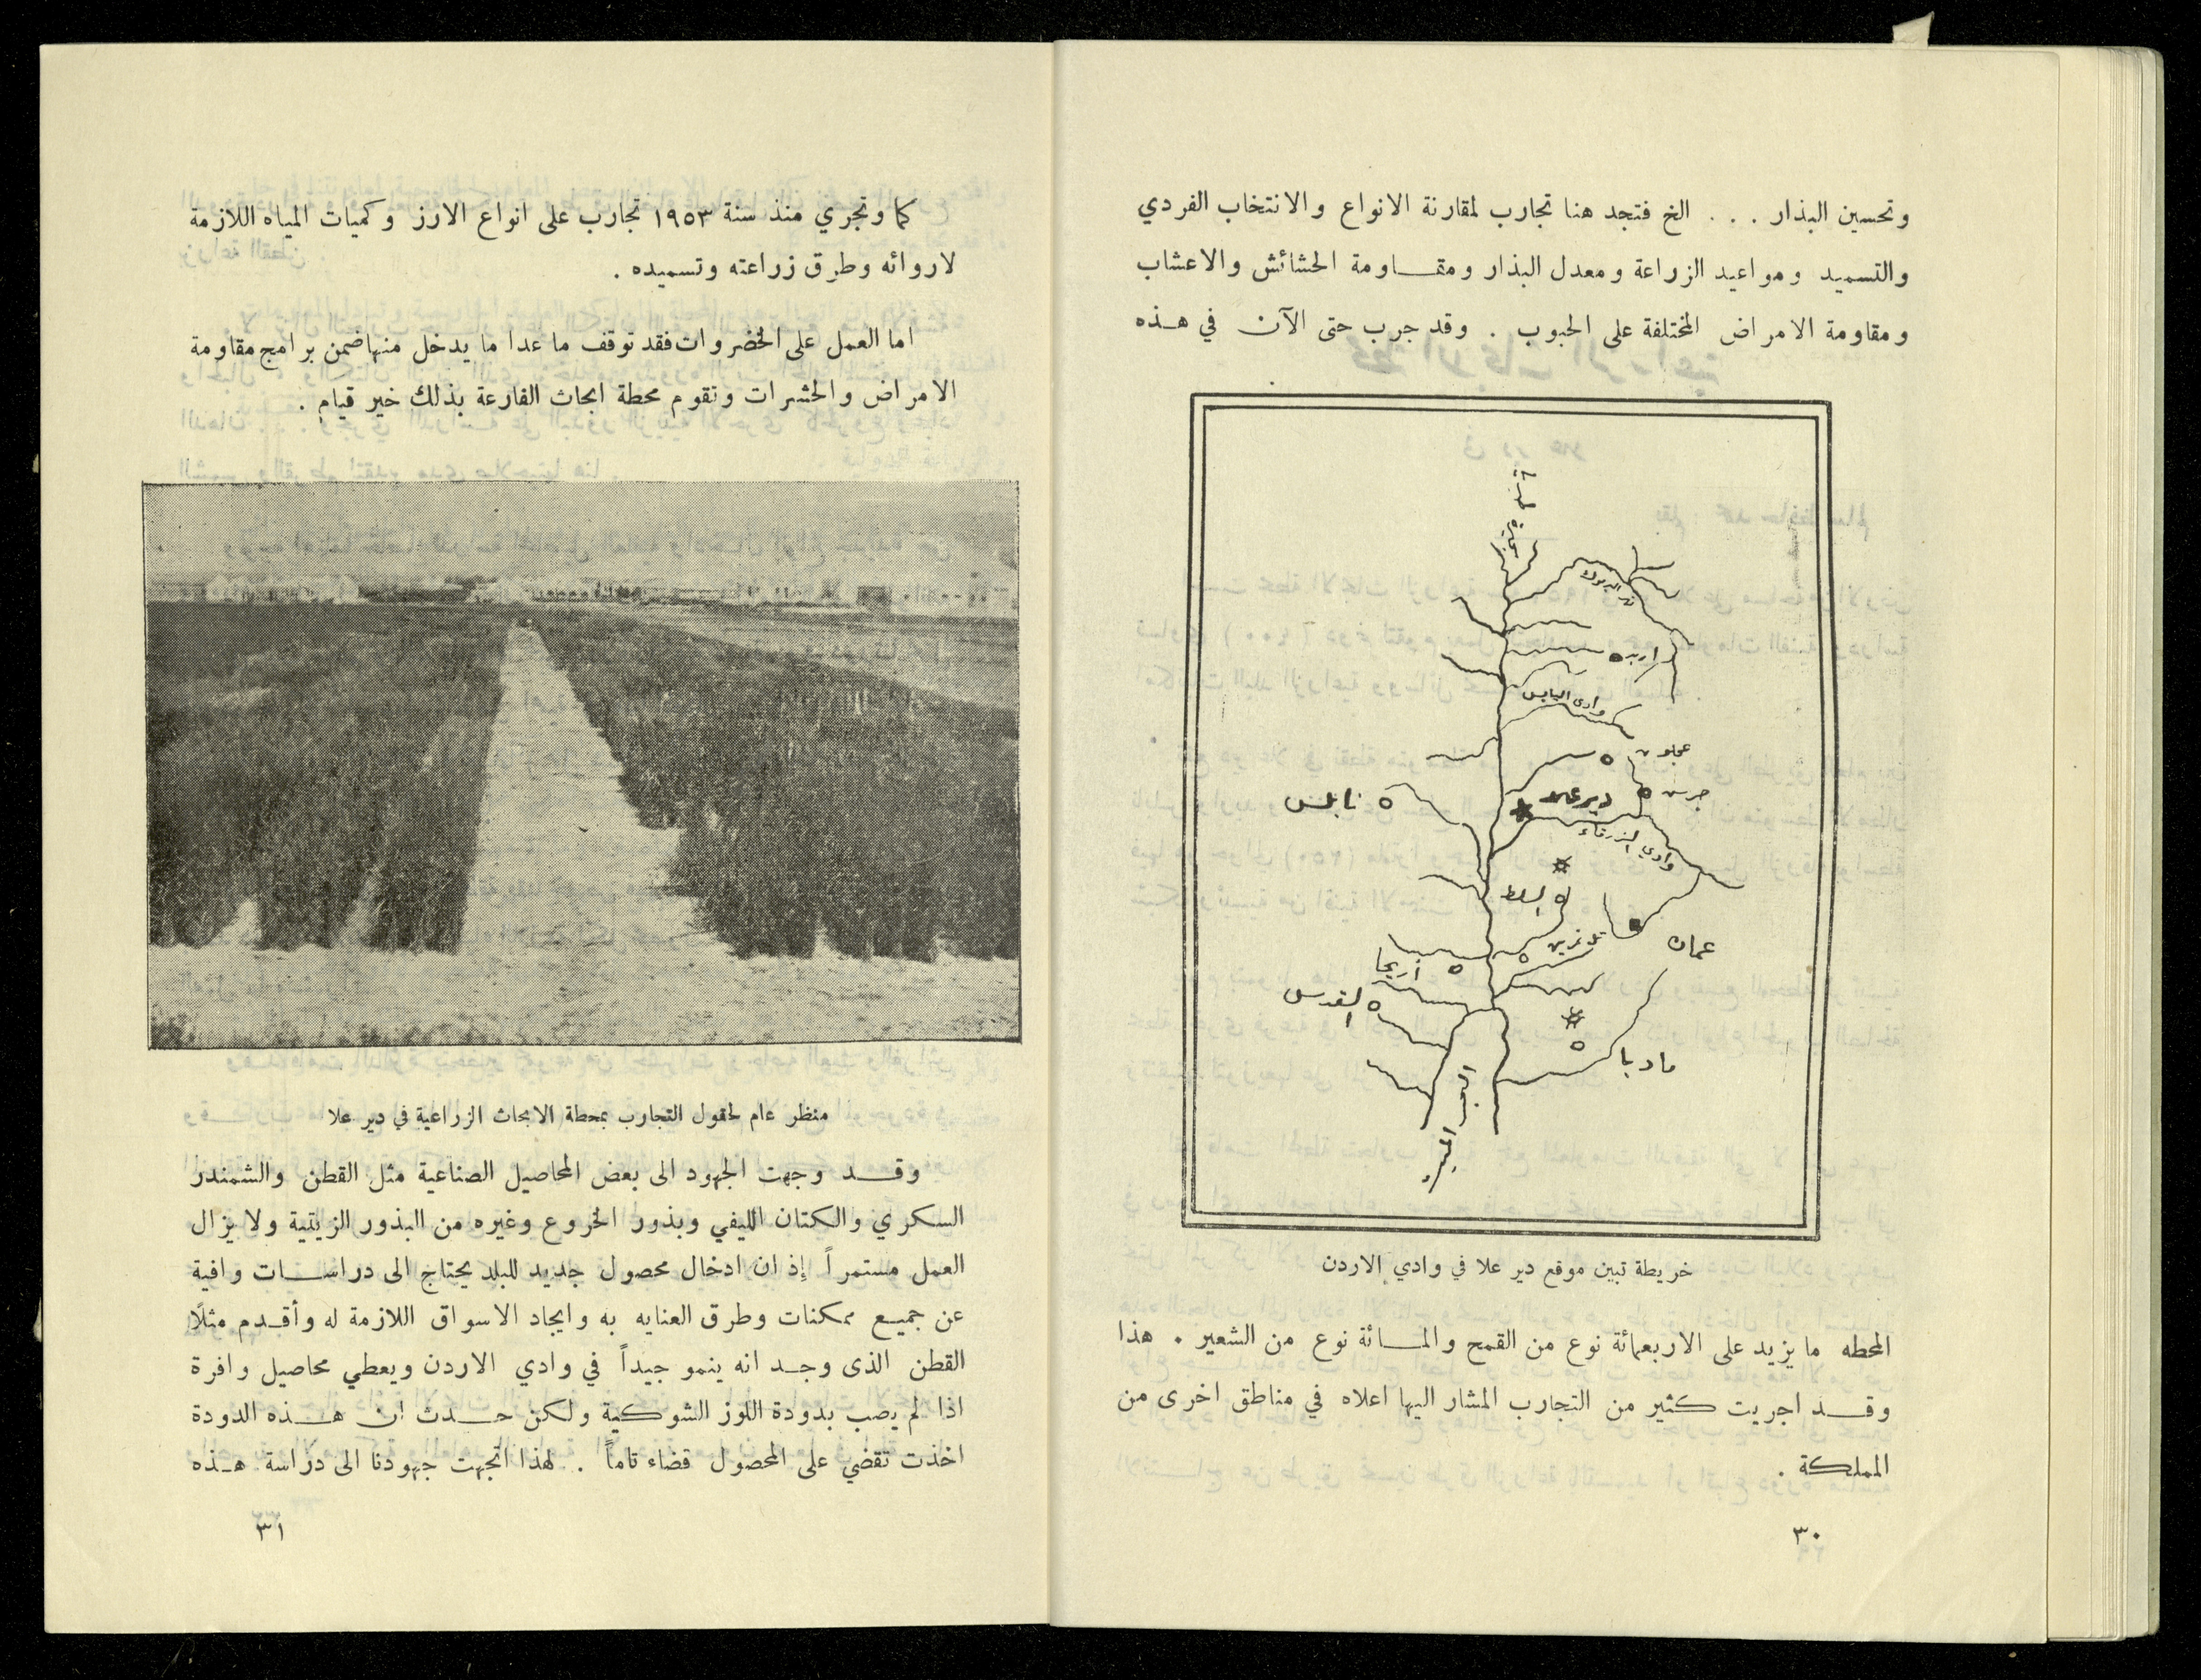 وتحسين البذار . . . الخ فتجد هنا تجارب لمقارنة الانواع والانتخاب الفردي
والتسميد ومواعيد الزراعة ومعدل البذار ومقاومة الحشائش والاعشاب
ومقاومة الامراض المختلفة على الحبوب . وقد جرب حتى الآن في هذه
اربد
وادي اليابس
عجلون
جرش
دير علا
نابلس
وادي الزرقاء
السلط
عمان
اريحا
القدس
مادبا
البحر الميت
خريطة تبين موقع دير علا في وادي الاردن
المحطه ما يزيد على الاربعمائة نوع من القمح والمائة نوع من الشعير . هذا
وقد اجريت كثير من التجارب المشار اليها اعلاه في مناطق اخرى من
المملكة .
٣٠
كما وتجري منذ سنة ١٩٥٣ تجارب على انواع الارز وكميات المياه اللازمة
لاروائه وطرق زراعته وتسميده .
اما العمل على الخضروات فقد توقف ما عدا ما يدخل منها ضمن برامج مقاومة
الامراض والحشرات وتقوم محطة ابحاث الفارعة بذلك خير قيام .
منظر عام لحقول التجارب بمحطة الابحاث الزراعية في دير علا
وقد وجهت الجهود الى بعض المحاصيل الصناعية مثل القطن والشمندر
السكري والكتان الليفي وبذور الخروع وغيره من البذور الزيتية ولا يزال
العمل مستمراً إذ ان ادخال محصول جديد للبلد يحتاج الى دراسات وافية
عن جميع ممكنات وطرق العنايه به وايجاد الاسواق اللازمة له وأقدم مثلًا
القطن الذى وجد انه ينمو جيداً في وادي الاردن ويعطي محاصيل وافرة
اذا لم يصب بدودة اللوز الشوكية ولكن حدث ان هذه الدودة
اخذت تقضي على المحصول قضاء تاماً . لهذا اتجهت جهودنا الى دراسة هذه
٣١